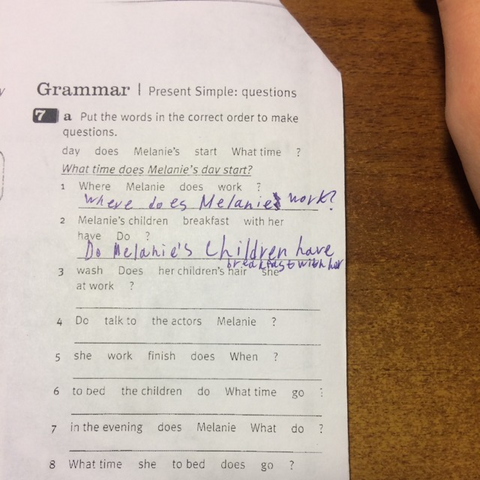 Grammar | Present Simple: questions
7 a Put the words in the correct order to make
questions.
day does Melanie's start What time ?
What time does Melanie's day start?
1 Where Melanie does work ?
Where does Melanie work?
2 Melanie's children breakfast with her
have Do ?
Do Melanie's Children have
breakfast with her
3 wash Does her children's hair she
at work ?
4 Do talk to the actors Melanie ?
5 she work finish does When ?
6 to bed the children do What time go ?
7 in the evening does Melanie What do ?
8 What time she to bed does go ?